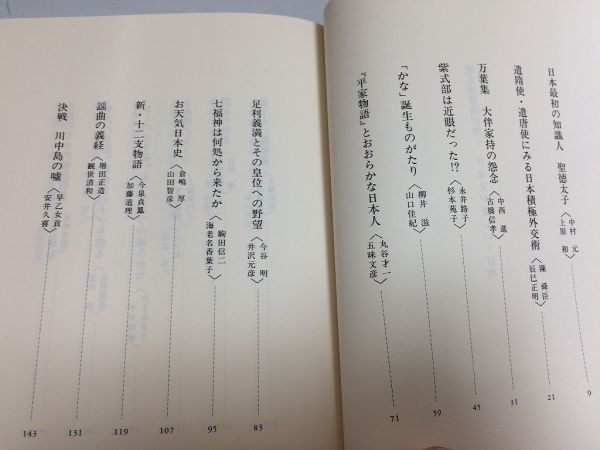 日本最初の知識人 聖徳太子〈中村 元 上原 和〉 9
遣隋使・遣唐使にみる日本積極外交術〈陳 舜臣 辰巳正明〉 21
万葉集 大伴家持の怨念〈中西 進 古橋信孝〉 31
紫式部は近眼だった!?〈永井路子 杉本苑子〉 45
「かな」誕生ものがたり〈柳井 滋 山口佳紀〉 59
『平家物語』とおおらかな日本人〈丸谷才一 五味文彦〉 71
足利義満とその皇位への野望〈今谷 明 井沢元彦〉 83
七福神は何処から来たか〈駒田信二 海老名香葉子〉 95
お天気日本史〈倉嶋 厚 山田智彦〉 107
新・十二支物語〈今泉貞鳳 加藤道理〉 119
謡曲の義経〈増田正造 観世清和〉 131
決戦 川中島の嘘〈早乙女貢 安井久喜〉 143